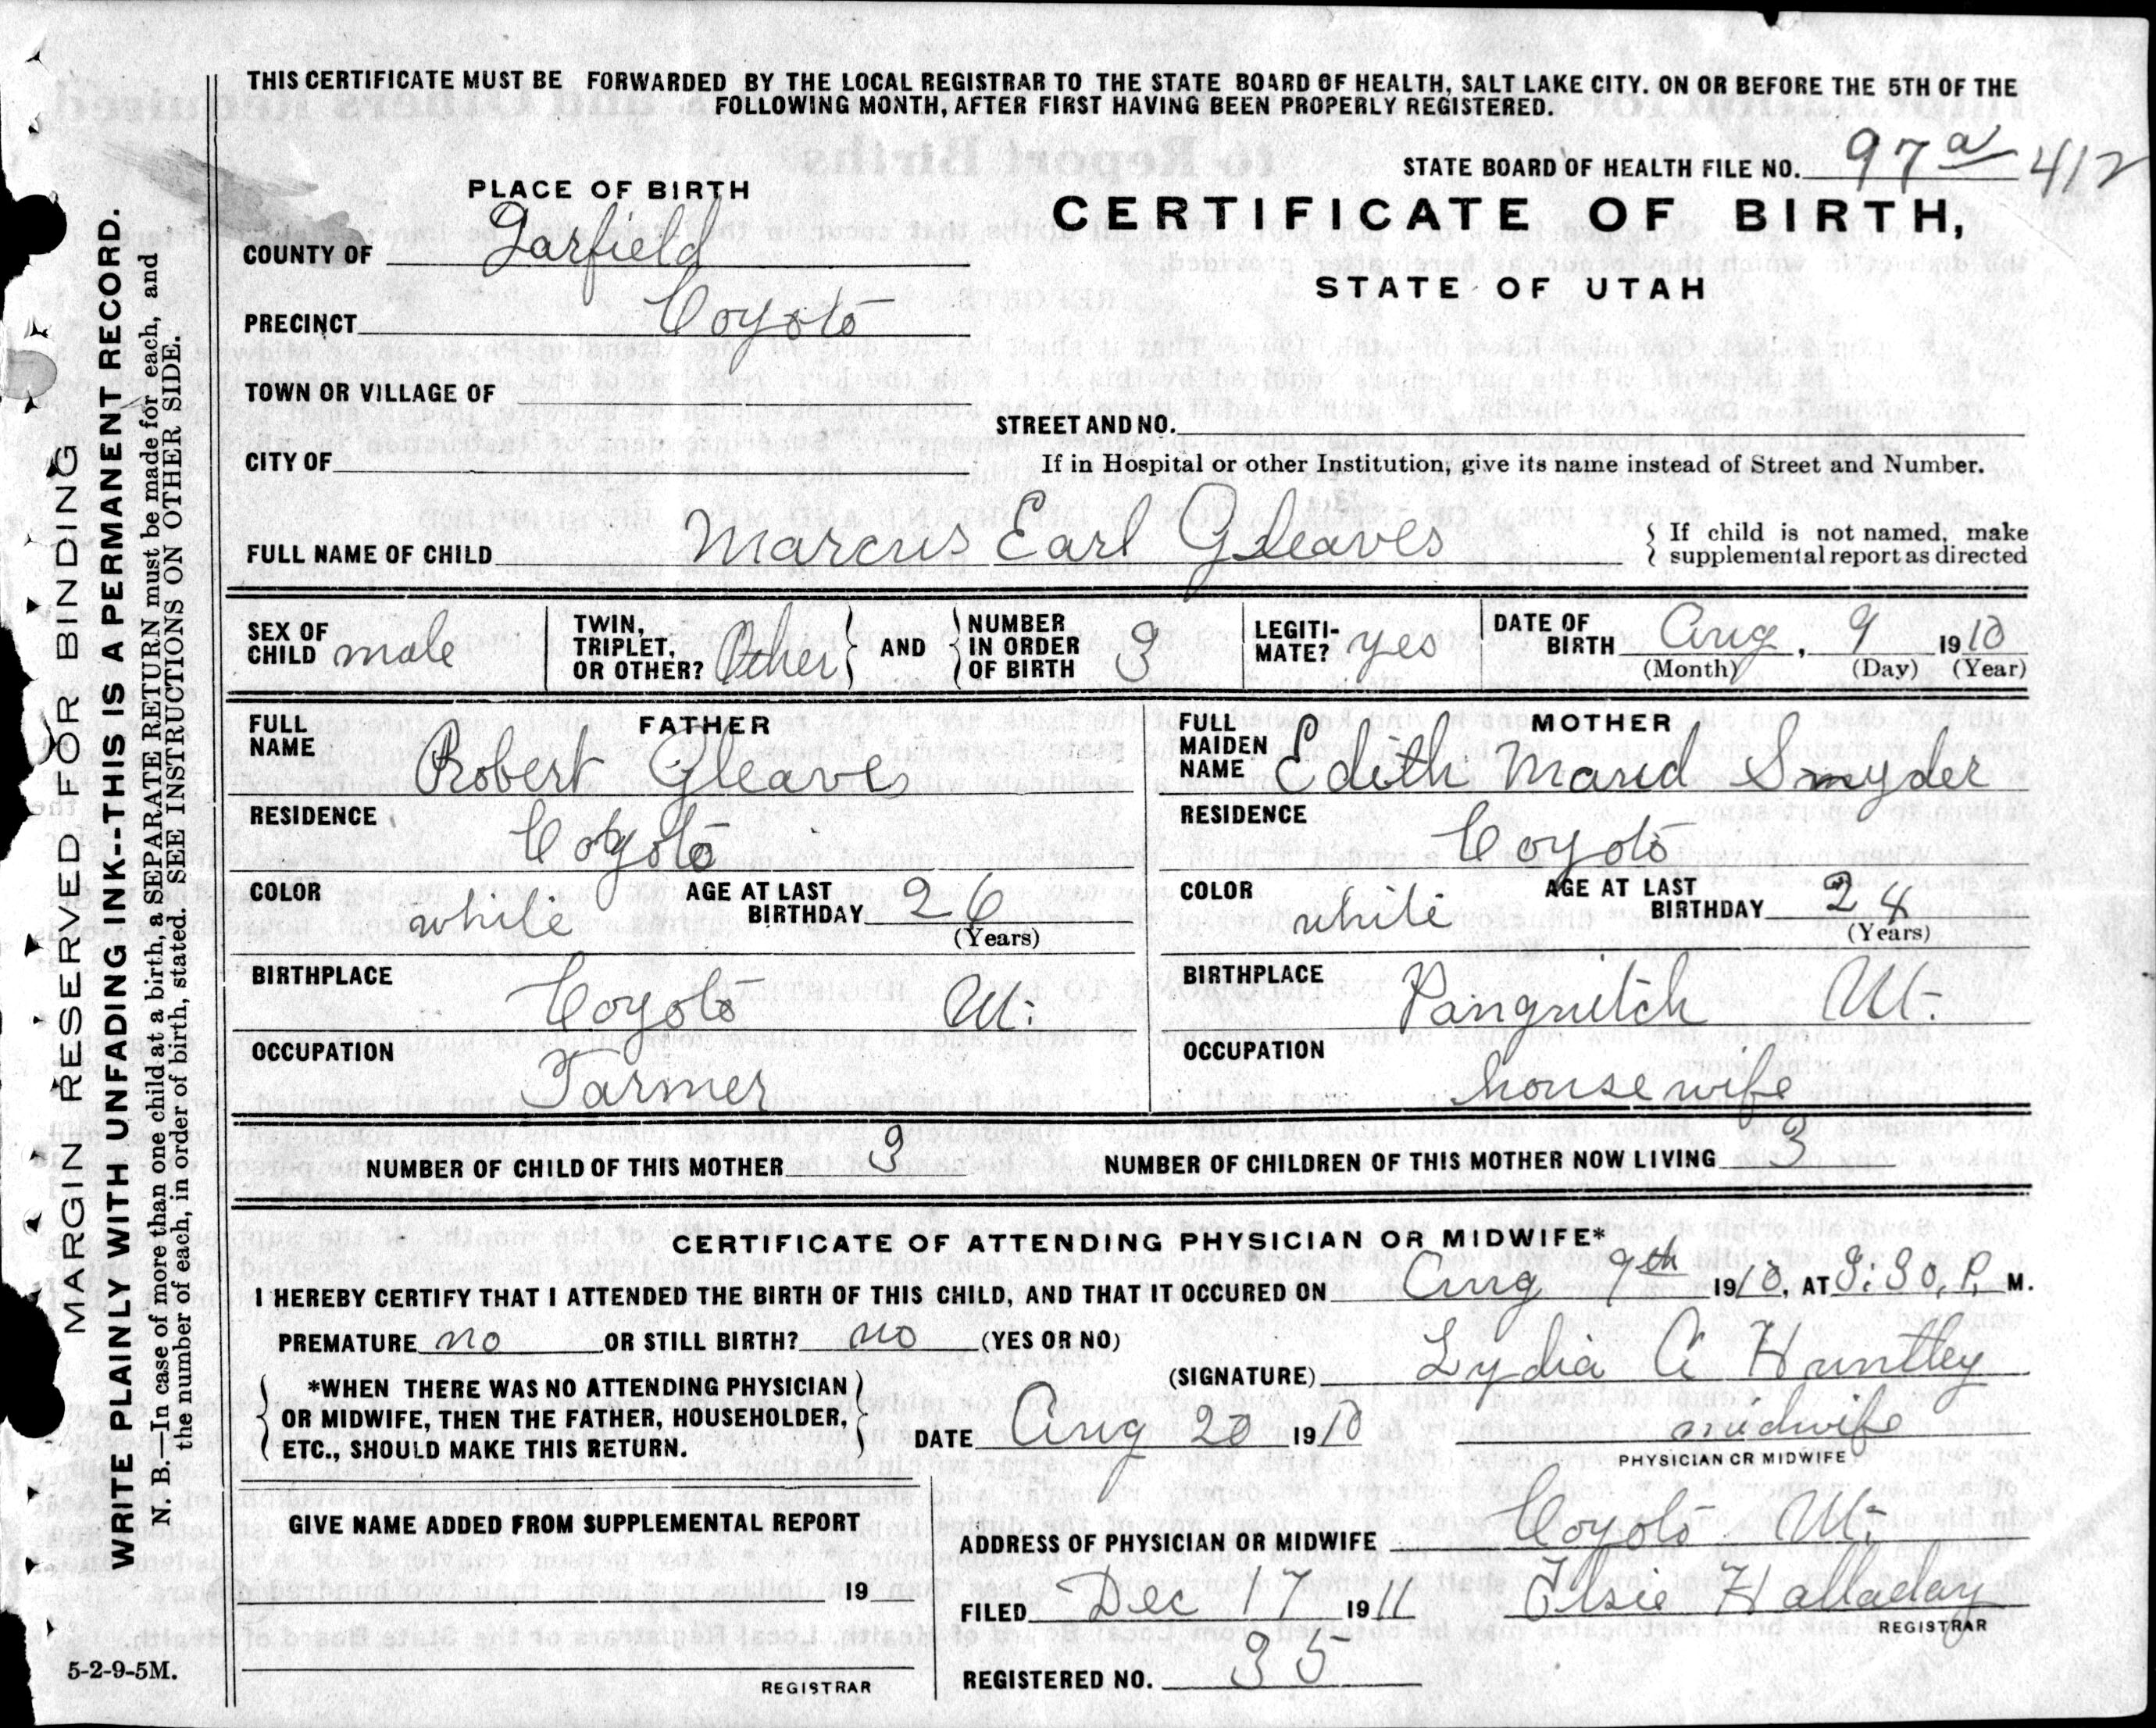 THIS CERTIFICATE MUST BE FORWARDED BY THE LOCAL REGISTRAR TO THE STATE BOARD OF HEALTH, SALT LAKE CITY. ON OR BEFORE THE 5TH OF THE
FOLLOWING MONTH, AFTER FIRST HAVING BEEN PROPERLY REGISTERED.
STATE BOARD OF HEALTH FILE NO. 97 a 412
PLACE OF BIRTH
CERTIFICATE OF BIRTH,
COUNTY OF Garfield
STATE OF UTAH
PRECINCT Coyoto
TOWN OR VILLAGE OF
STREET AND NO.
CITY OF
If in Hospital or other Institution, give its name instead of Street and Number.
FULL NAME OF CHILD Marcus Earl Gleaves
If child is not named, make
supplemental report as directed
SEX OF CHILD male
TWIN, TRIPLET, OR OTHER? Other
AND
NUMBER IN ORDER OF BIRTH 3
LEGITI-MATE? yes
DATE OF BIRTH Aug, 9 1910
(Month) (Day) (Year)
FATHER
FULL NAME Robert Gleaves
RESIDENCE Coyoto
COLOR white AGE AT LAST BIRTHDAY 26
(Years)
BIRTHPLACE Coyoto Ut.
OCCUPATION Farmer
MOTHER
FULL MAIDEN NAME Edith Maud Smyder
RESIDENCE Coyoto
COLOR white AGE AT LAST BIRTHDAY 24
(Years)
BIRTHPLACE Panguitch Ut.
OCCUPATION housewife
NUMBER OF CHILD OF THIS MOTHER 3 NUMBER OF CHILDREN OF THIS MOTHER NOW LIVING 3
CERTIFICATE OF ATTENDING PHYSICIAN OR MIDWIFE*
I HEREBY CERTIFY THAT I ATTENDED THE BIRTH OF THIS CHILD, AND THAT IT OCCURED ON Aug 9th 1910, AT 3:30, P. M.
PREMATURE no OR STILL BIRTH? no (YES OR NO)
(SIGNATURE) Lydia A Huntley
*WHEN THERE WAS NO ATTENDING PHYSICIAN
OR MIDWIFE, THEN THE FATHER, HOUSEHOLDER,
ETC., SHOULD MAKE THIS RETURN.
DATE Aug 20 1910
midwife
PHYSICIAN OR MIDWIFE
GIVE NAME ADDED FROM SUPPLEMENTAL REPORT
19
REGISTRAR
ADDRESS OF PHYSICIAN OR MIDWIFE Coyoto Ut.
FILED Dec 17 1911 Elsie Halladay
REGISTRAR
REGISTERED NO. 35
5-2-9-5M.
MARGIN RESERVED FOR BINDING
WRITE PLAINLY WITH UNFADING INK--THIS IS A PERMANENT RECORD.
N. B.—In case of more than one child at a birth, a SEPARATE RETURN must be made for each, and
the number of each, in order of birth, stated. SEE INSTRUCTIONS ON OTHER SIDE.